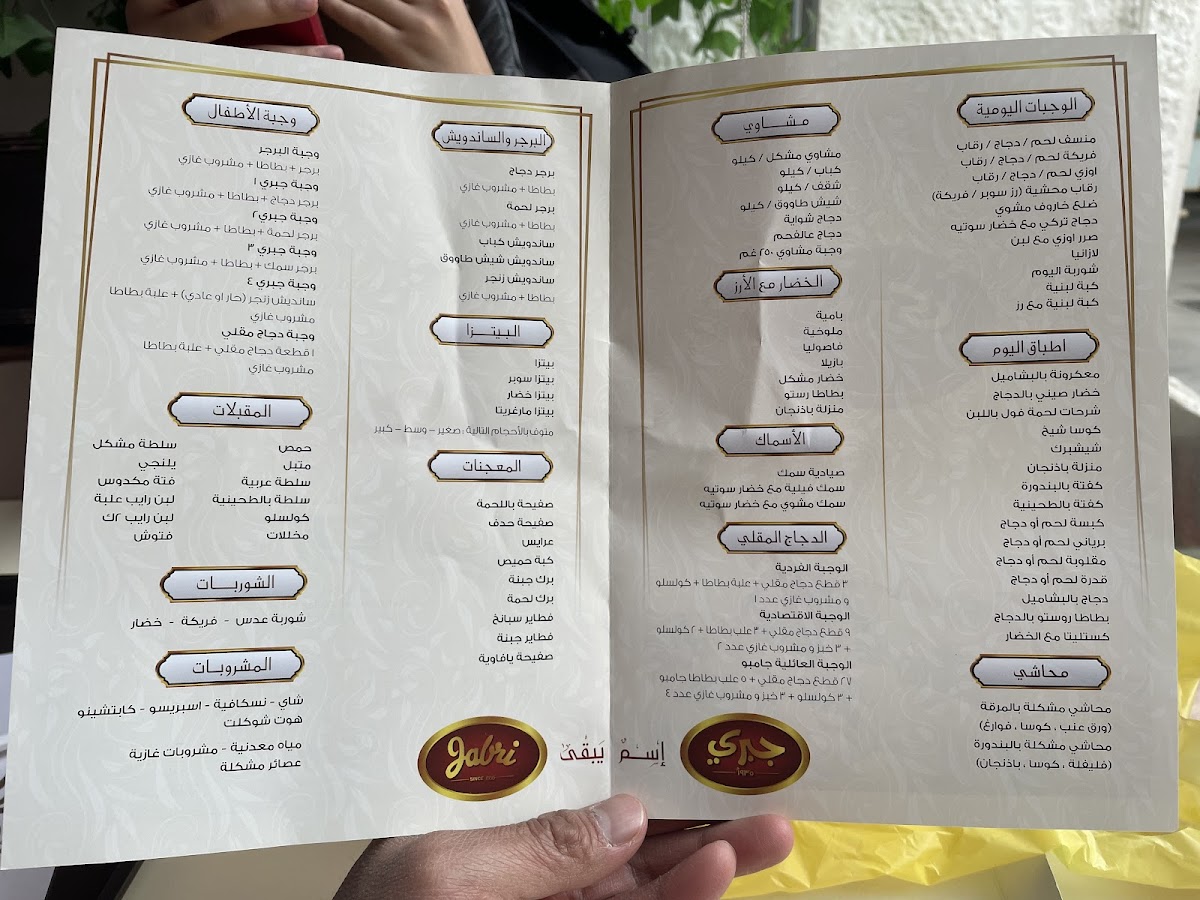 الوجبات اليومية
منسف لحم / دجاج / رقاب
فريكة لحم / دجاج / رقاب
اوزي لحم / دجاج / رقاب
رقاب محشية (رز سوبر / فريكة)
ضلع خاروف مشوي
دجاج تركي مع خضار سوتيه
صرر اوزي مع لبن
لازانيا
شوربة اليوم
كبة لبنية
كبة لبنية مع رز
اطباق اليوم
معكرونة بالبشاميل
خضار صيني بالدجاج
شرحات لحمة فول باللبن
كوسا شيخ
شيشبرك
منزلة باذنجان
كفتة بالبندورة
كفتة بالطحينية
كبسة لحم أو دجاج
برياني لحم أو دجاج
مقلوبة لحم أو دجاج
قدرة لحم أو دجاج
دجاج بالبشاميل
بطاطا روستو بالدجاج
كستليتا مع الخضار
محاشي
محاشي مشكلة بالمرقة
(ورق عنب ، كوسا ، فوارغ)
محاشي مشكلة بالبندورة
(فليفلة ، كوسا ، باذنجان)
مشــاوي
مشاوي مشكل / كيلو
كباب / كيلو
شقف / كيلو
شيش طاووق / كيلو
دجاج شواية
دجاج عالفحم
وجبة مشاوي ٢٥٠ غم
الخضار مع الأرز
بامية
ملوخية
فاصوليا
بازيلا
خضار مشكل
بطاطا رستو
منزلة باذنجان
الأسماك
صيادية سمك
سمك فيلية مع خضار سوتيه
سمك مشوي مع خضار سوتيه
الدجاج المقلي
الوجبة الفردية
٣ قطع دجاج مقلي + علبة بطاطا + كولسلو
و مشروب غازي عدد ١
الوجبة الاقتصادية
٩ قطع دجاج مقلي + ٣ علب بطاطا + ٢ كولسلو
+ ٣ خبز و مشروب غازي عدد ٢
الوجبة العائلية جامبو
٢٧ قطع دجاج مقلي + ٥ علب بطاطا جامبو
+ ٣ كولسلو + ٣ خبز و مشروب غازي عدد ٤
جبري
١٩٣٥
إسـمٌ يَبقَى
البرجر والساندويش
برجر دجاج
بطاطا + مشروب غازي
برجر لحمة
بطاطا + مشروب غازي
ساندويش كباب
ساندويش شيش طاووق
ساندويش زنجر
بطاطا + مشروب غازي
البيتــزا
بيتزا
بيتزا سوبر
بيتزا خضار
بيتزا مارغريتا
متوفر بالأحجام التالية : صغير - وسط - كبير
المعجنات
صفيحة باللحمة
صفيحة حدف
عرايس
كبة حميص
برك جبنة
برك لحمة
فطاير سبانخ
فطاير جبنة
صفيحة يافاوية
Jabri
وجبة الأطفال
وجبة البرجر
برجر + بطاطا + مشروب غازي
وجبة جبري ١
برجر دجاج + بطاطا + مشروب غازي
وجبة جبري ٢
برجر لحمة + بطاطا + مشروب غازي
وجبة جبري ٣
برجر سمك + بطاطا + مشروب غازي
وجبة جبري ٤
سانديش زنجر (حار او عادي) + علبة بطاطا
مشروب غازي
وجبة دجاج مقلي
١ قطعة دجاج مقلي + علبة بطاطا
مشروب غازي
المقبلات
حمص
متبل
سلطة عربية
سلطة بالطحينية
كولسلو
مخللات
سلطة مشكل
يلنجي
فتة مكدوس
لبن رايب علبة
لبن رايب ٢ك
فتوش
الشوربــات
شوربة عدس - فريكة - خضار
المشروبات
شاي - نسكافية - اسبريسو - كابتشينو
هوت شوكلت
مياه معدنية - مشروبات غازية
عصائر مشكلة